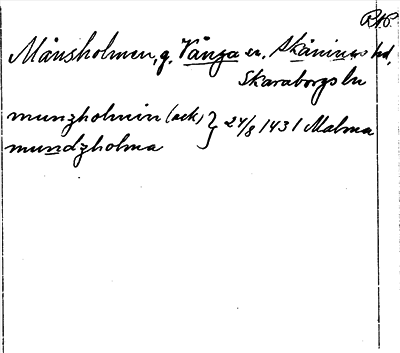 RAP
Månsholmen, g. Vånga sn. Skånings hd.
Skaraborgs ln
munzholmin (ack) } 24/8 1431 Malma
mundzholma